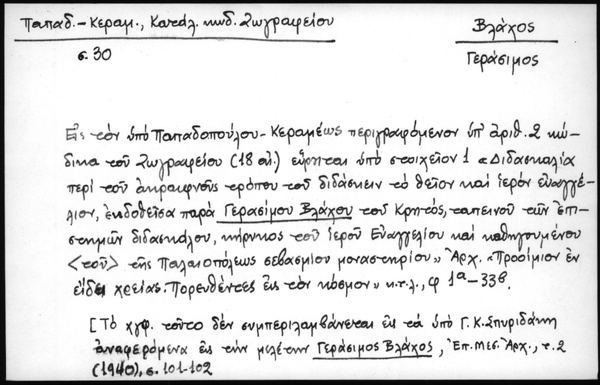 Παπαδ.-Κεραμ., Κατάλ. κωδ. Ζωγραφείου
Βλάχος
σ. 30
Γεράσιμος
Εἰς τὸν ὑπὸ Παπαδοπούλου-Κεραμέως περιγραφόμενον ὑπ' ἀριθ. 2 κώ-
δικα τοῦ Ζωγραφείου (18 αἰ.) εὕρηται ὑπὸ στοιχεῖον 1 «Διδασκαλία
περὶ τοῦ ἀκραιφνοῦς τρόπου τοῦ διδάσκειν τὸ θεῖον καὶ ἱερὸν εὐαγγέ-
λιον, ἐκδοθεῖσα παρὰ Γερασίμου Βλάχου τοῦ Κρητός, ταπεινοῦ τῶν ἐπι-
στημῶν διδασκάλου, κήρυκος τοῦ ἱεροῦ Εὐαγγελίου καὶ καθηγουμένου
<τοῦ> τῆς Παλαιοπόλεως σεβασμίου μοναστηρίου» Ἀρχ. «Προοίμιον ἐν
εἴδει χρείας. Πορευθέντες εἰς τὸν κόσμον» κ.τ.λ., φ 1α-33β.
[Τὸ χγφ. τοῦτο δὲν συμπεριλαμβάνεται εἰς τὰ ὑπὸ Γ.Κ. Σπυριδάκη
ἀναφερόμενα εἰς τὴν μελέτην Γεράσιμος Βλάχος, Ἐπ. Μεσ. Ἀρχ., τ. 2
(1940), σ. 101-102